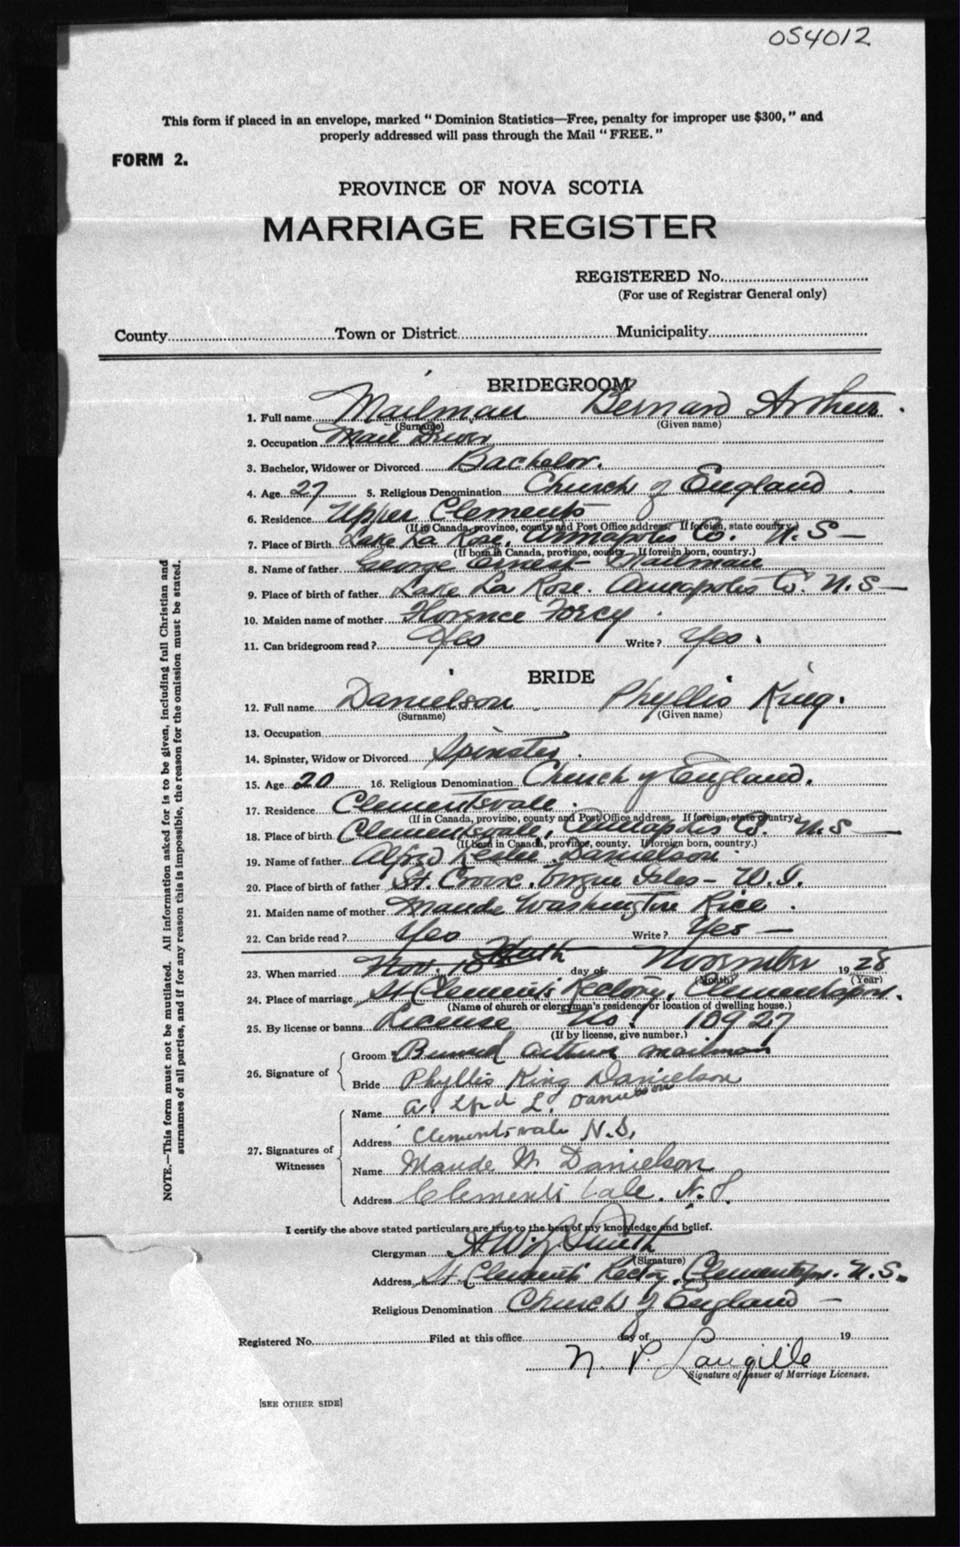 054012
This form if placed in an envelope, marked "Dominion Statistics—Free, penalty for improper use $300," and
properly addressed will pass through the Mail "FREE."
FORM 2.
PROVINCE OF NOVA SCOTIA
MARRIAGE REGISTER
REGISTERED No.
(For use of Registrar General only)
County Town or District Municipality
BRIDEGROOM
1. Full name Mailman Bernard Arthur
(Surname) (Given name)
2. Occupation Mail Driver
3. Bachelor, Widower or Divorced Bachelor.
4. Age 27 5. Religious Denomination Church of England
6. Residence Upper Clements
(If in Canada, province, county and Post Office address. If foreign, state country.)
7. Place of Birth Lake La Rose, Annapolis Co. N.S—
(If born in Canada, province, county. If foreign born, country.)
8. Name of father George Ernest Mailman
9. Place of birth of father Lake La Rose. Annapolis Co. N.S—
10. Maiden name of mother Florence
11. Can bridegroom read? Yes Write? Yes.
BRIDE
12. Full name Danielson Phyllis King.
(Surname) (Given name)
13. Occupation
14. Spinster, Widow or Divorced Spinster.
15. Age 20 16. Religious Denomination Church of England.
17. Residence Clementsvale.
(If in Canada, province, county and Post Office address. If foreign, state country.)
18. Place of birth Clementsvale, Annapolis Co. N.S—
(If born in Canada, province, county. If foreign born, country.)
19. Name of father Alfred Leslie Danielson.
20. Place of birth of father St. Croix. Isles— W.I.
21. Maiden name of mother Maude Washington Rice.
22. Can bride read? Yes Write? Yes—
23. When married Nov. 10 day of November 1928
(Month) (Year)
24. Place of marriage St Clement's Rectory, Clementsport.
(Name of church or clergyman's residence or location of dwelling house.)
25. By license or banns License No. 10927
(If by license, give number.)
26. Signature of
Groom Bernard Arthur Mailman
Bride Phyllis King Danielson
27. Signatures of
Witnesses
Name L. Danielson
Address Clementsvale N.S.
Name Maude W. Danielson
Address Clementsvale. N.S.
I certify the above stated particulars are true to the best of my knowledge and belief.
Clergyman A.W.L. Smith
(Signature)
Address St Clement's Rectory, Clementsport. N.S.
Religious Denomination Church of England—
Registered No. Filed at this office day of 19
N. P. Langille
Signature of Issuer of Marriage Licenses.
[SEE OTHER SIDE]
NOTE.—This form must not be mutilated. All information asked for is to be given, including full Christian and
surnames of all parties, and if for any reason this is impossible, the reason for the omission must be stated.